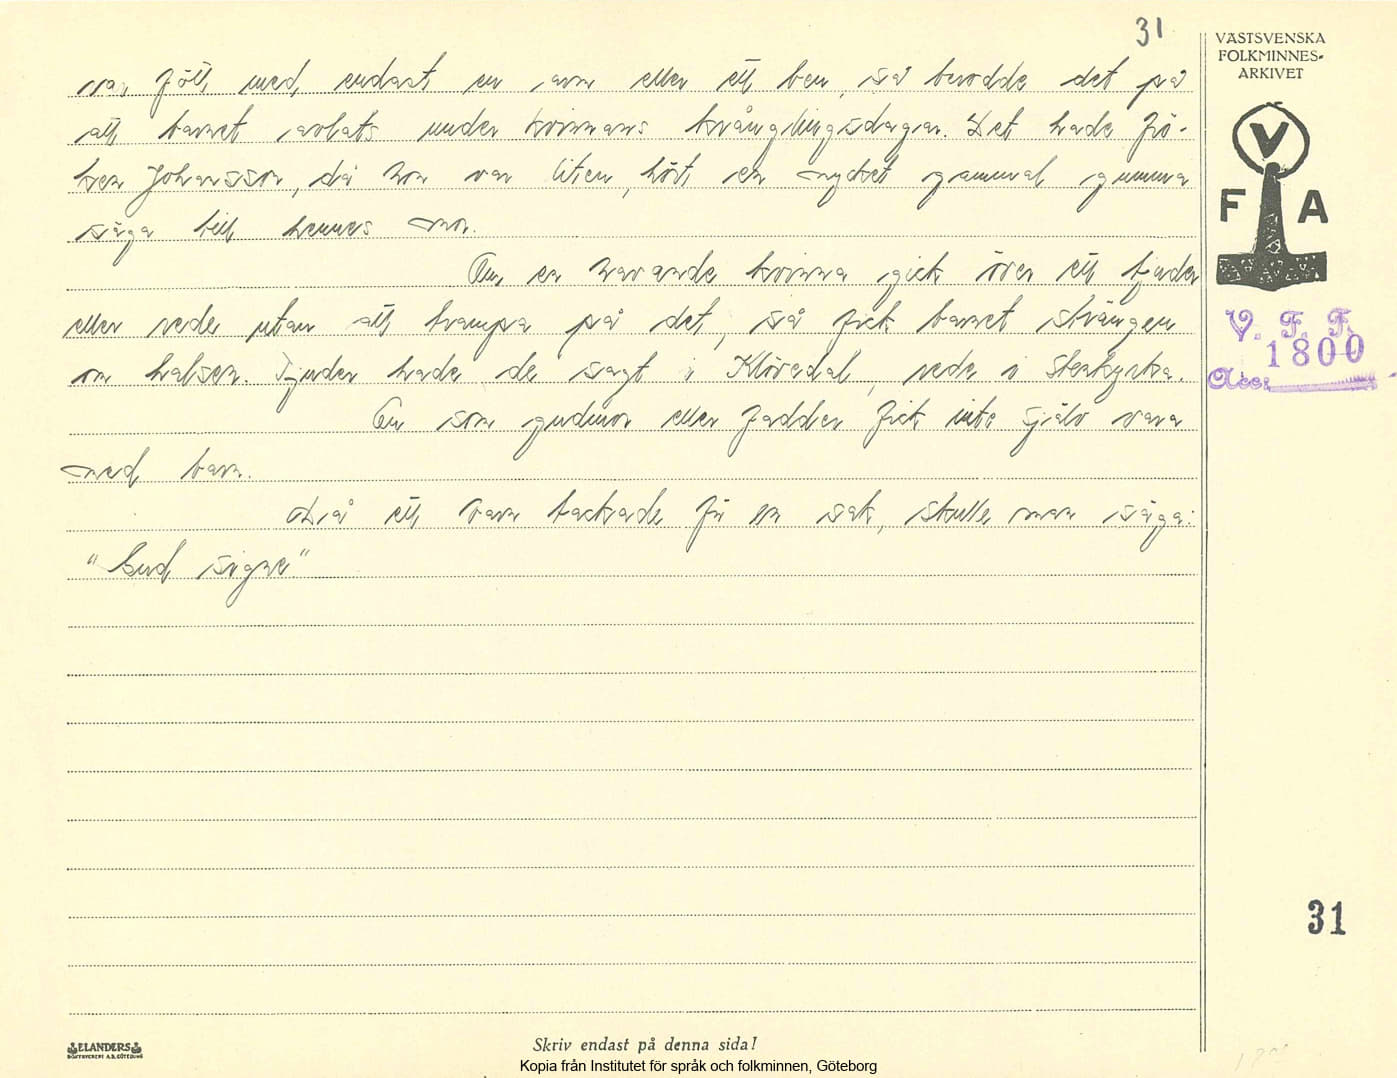 31
VÄSTSVENSKA
FOLKMINNES-
ARKIVET
V
F A
V. F. F.
1800
Acc:
var fött med endast en arm eller ett ben, så berodde det på
att barnet avlats under kvinnans krånglingsdagar. Det hade frö-
ken Johansson, då hon var liten, hört en mycket gammal gumma
säga till hennes mor.
Om en havande kvinna gick över ett tjuder
eller rede utan att trampa på det, så fick barnet strängen
om halsen. Tjuder hade de sagt i Klövedal, rede i Stenkyrka.
En som gudmor eller fadder fick inte själv vara
med barn.
Då ett barn tackade för en sak, skulle man säga:
"Gud signe"
31
ELANDERS
BOKTRYCKERI A.B. GÖTEBORG
Skriv endast på denna sida!
Kopia från Institutet för språk och folkminnen, Göteborg